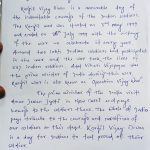 Kargil Vijay Diwas is a memorable day of
the unbeatable courage of the Indian soldiers.
The Kargil war was started on 3rd may 1999
and ended on 26th July with the victory
of the war - celebrate of every year
Around two lakh Indian soldiers had participated
in the war and the war took the lives of
527 Indian soldiers. Atal Bihari Vajpayee was
the prime minister of India during this time.
Kargil war is also known as "Operation Vijay War".
The prime minister of the India visit
Amar Jawan Jyoti in New Delhi and pays
homage to the soldiers there. The whole of India
pays tribute to the courage and sacrifices of
our soldiers on this day. Kargil Vijay Diwas
is a day for Indians to feel proud of their
soldiers.